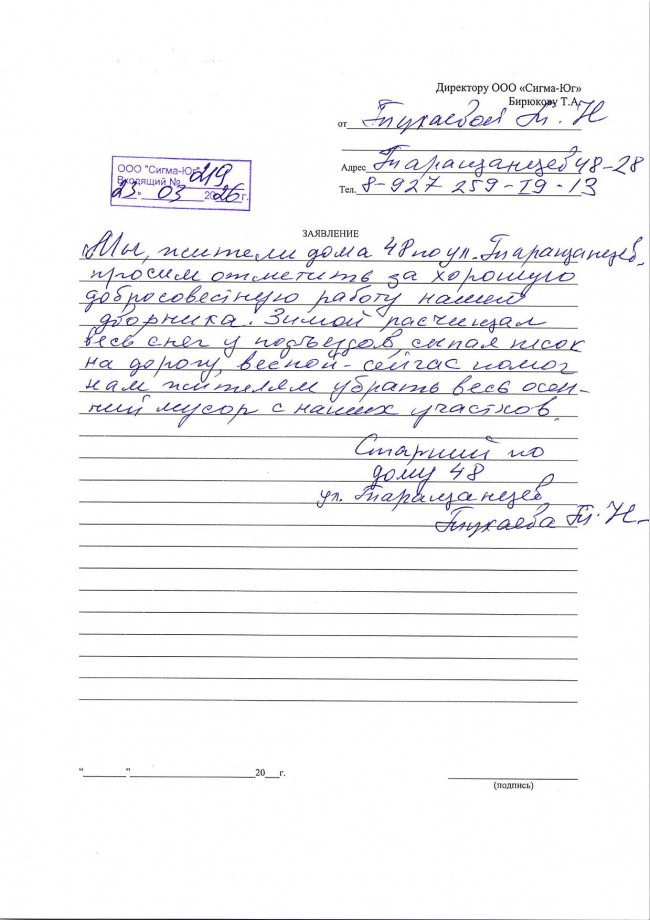 Директору ООО «Сигма-Юг»
Бирюкову Т.А.
от Тюкаевой Т. Н
Адрес Таращанцев 48-28
Тел. 8-927 259-19-13
ООО "Сигма-Юг"
Входящий № 219
23 " 03 2026 г.
ЗАЯВЛЕНИЕ
Мы, жители дома 48 по ул. Таращанцев,
просим отметить за хорошую
добросовестную работу нашего
дворника. Зимой расчищал
весь снег у подъездов, сыпал песок
на дорогу, весной - сейчас помог
нам жителям убрать весь осен-
ний мусор с наших участков.
Старший по
дому 48
ул. Таращанцев
Тюкаева Т. Н.
"____" ____ 20__г.
(подпись)